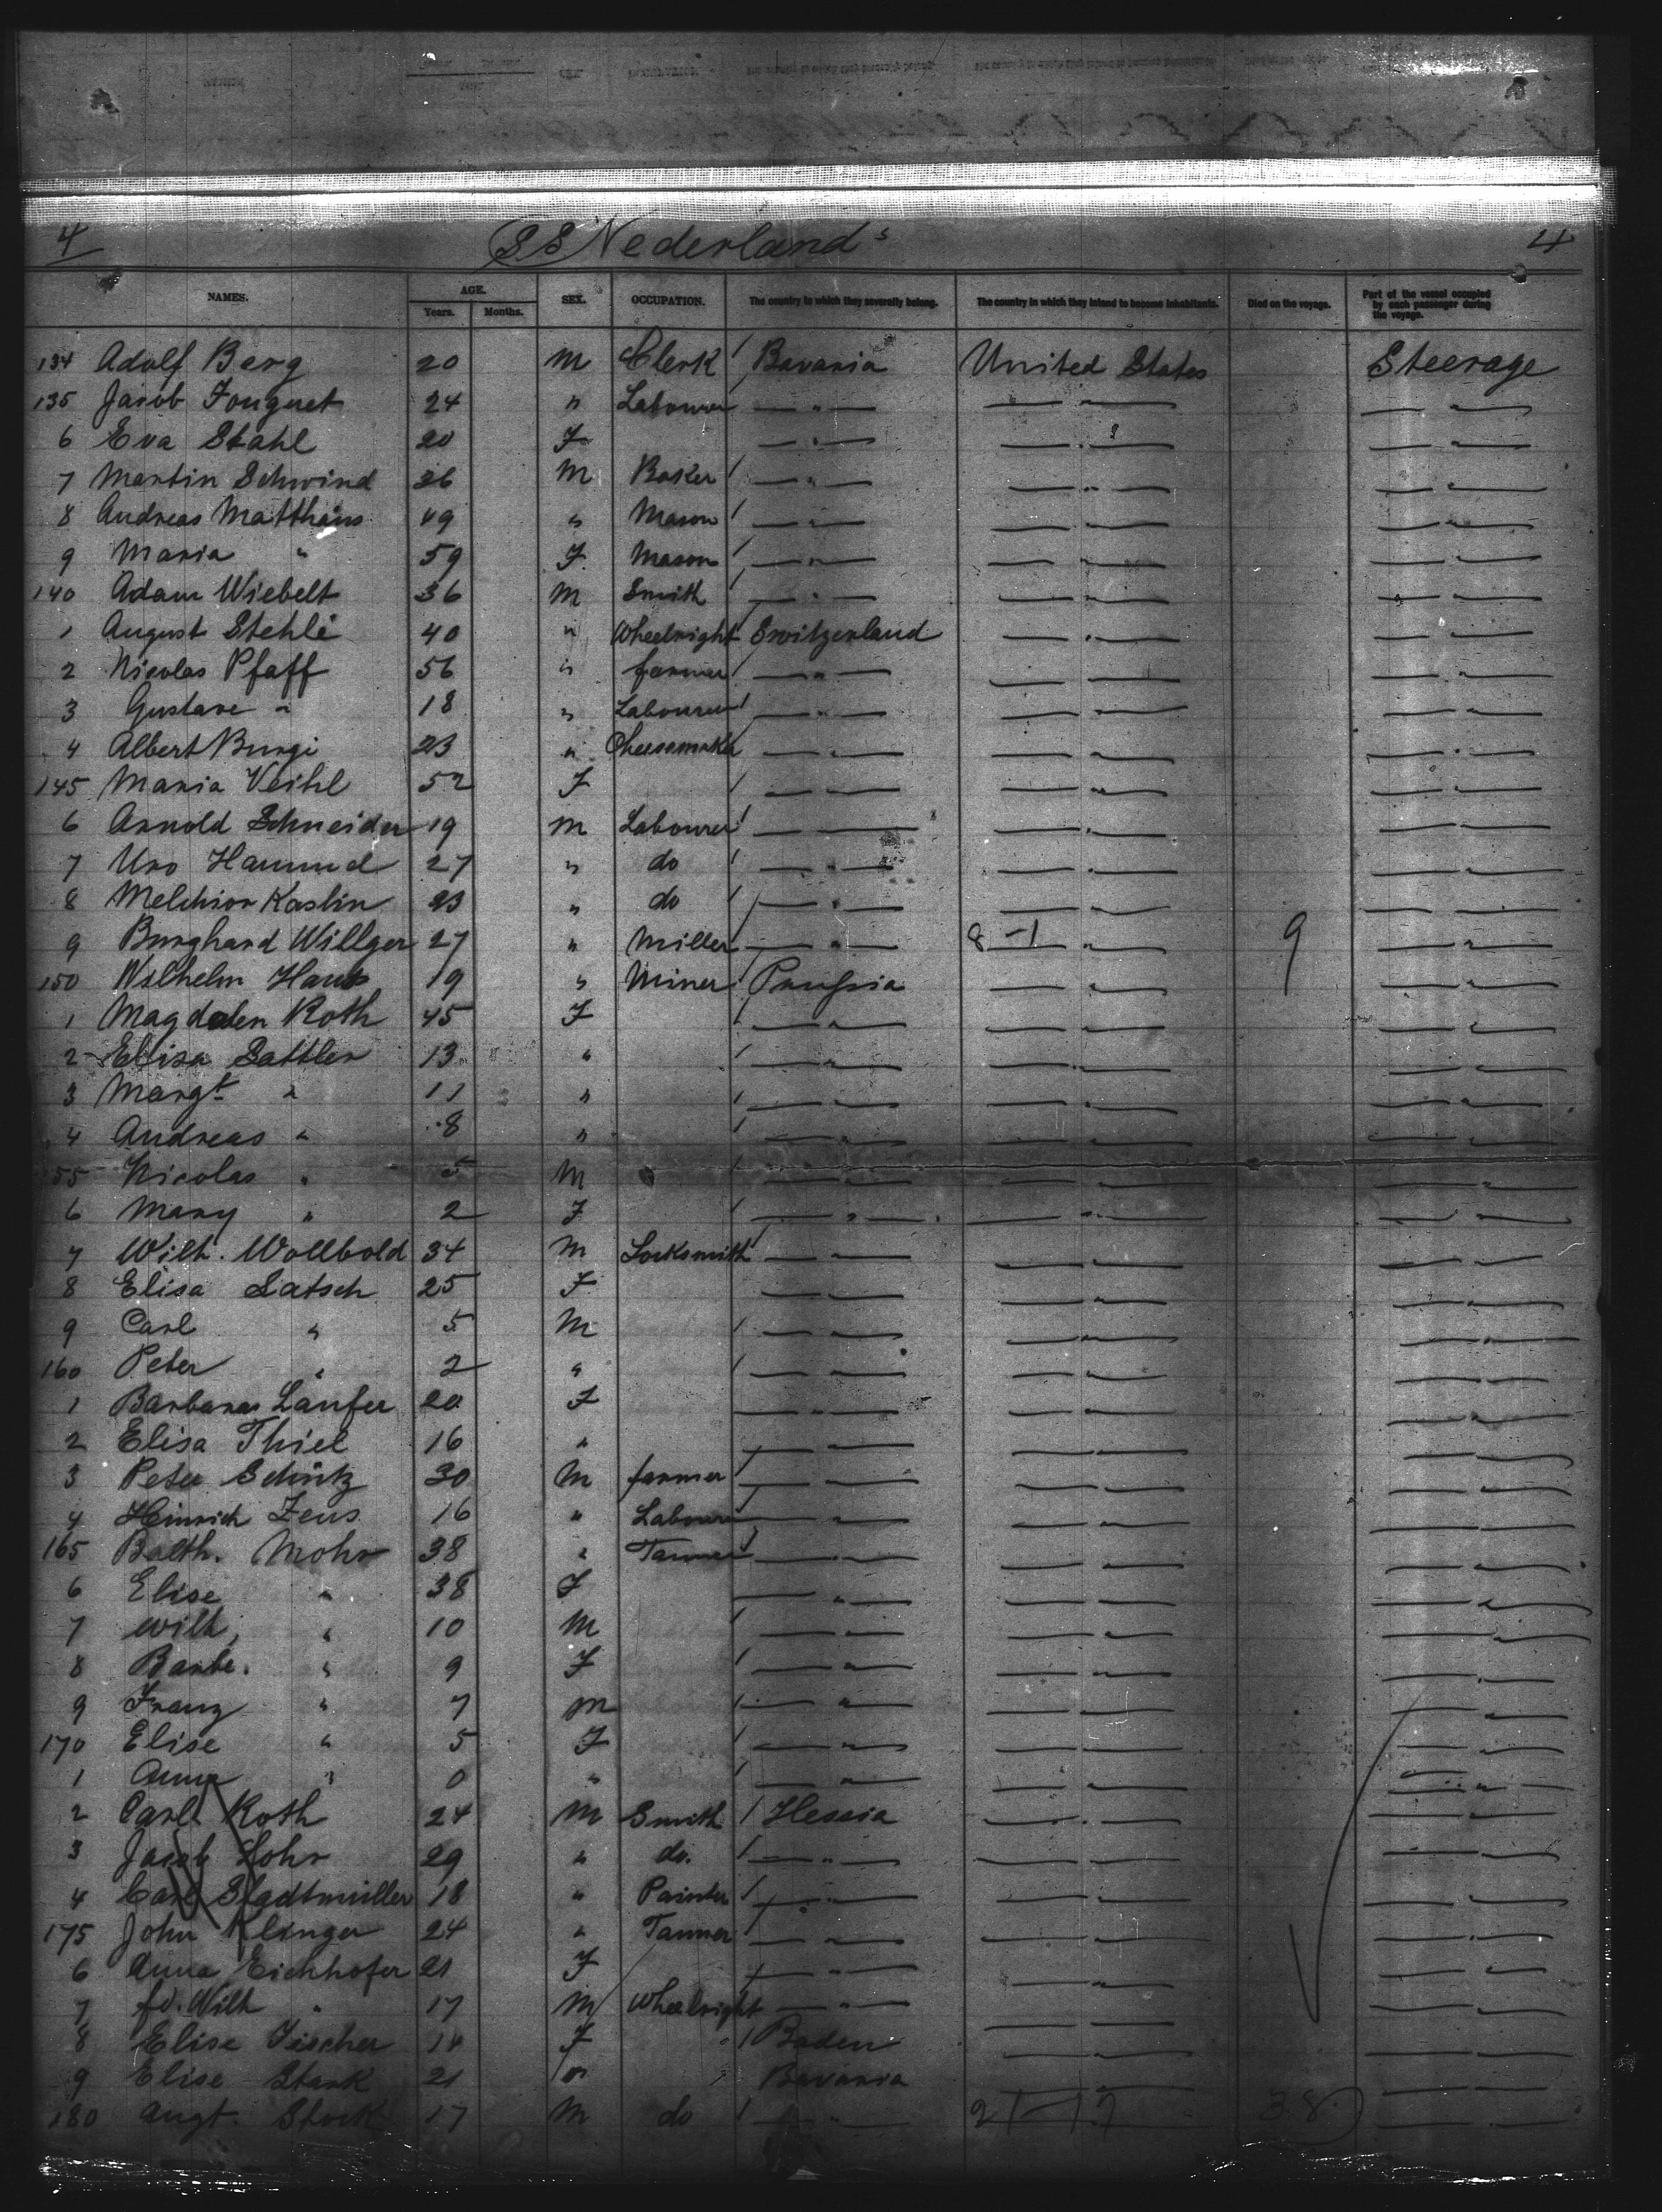 4 SS Nederland 4
NAMES. AGE. Years. Months. SEX. OCCUPATION. The country to which they severally belong. The country in which they intend to become inhabitants. Died on the voyage. Part of the vessel occupied by each passenger during the voyage.
134 Adolf Berg 20 M Clerk / Bavaria United States Steerage
135 Jacob Fouquet 24 " Labourer — " — — " — — " —
6 Eva Stahl 20 F — " — — " — — " —
7 Martin Schwind 26 M Baker / — " — — " — — " —
8 Andreas Matthäus 49 " Mason / — " — — " — — " —
9 Maria " 59 F. Mason / — " — — " — — " —
140 Adam Wiebelt 36 M Smith / — " — — " — — " —
1 August Stehle 40 " Wheelright Switzerland — " — — " —
2 Nicolas Pfaff 56 " farmer / — " — — " — — " —
3 Gustave " 18 " Labourer / — " — — " — — " —
4 Albert Burgi 23 " Cheesemaker — " — — " — — " —
145 Maria Veihl 52 F / — " — — " — — " —
6 Arnold Schneider 19 M Labourer / — — — " — — " —
7 Urs 27 " do / — " — — " — — " —
8 Melchior Kaslin 23 " do / — " — — " — — " —
9 Burghard Willger 27 " Miller / — " — 8 -1 " — 9 — " —
150 Wilhelm 19 " Miner / Prussia — " — — " —
1 Magdalen Roth 45 F — " — — " — — " —
2 Elisa Sattler 13 " / — " — — " — — " —
3 Margt " 11 " / — " — — " — — " —
4 Andreas " 8 " / — " — — " — — " —
55 Nicolas " 5 M / — " — — " — — " —
6 Mary " 2 F / — " — — " — — " —
7 Wilh. Wollbold 34 M Locksmith / — " — — " — — " —
8 Elisa Latsch 25 F — " — — " — — " —
9 Carl " 5 M / — " — — " — — " —
160 Peter " 2 " / — " — — " — — " —
1 Barbara Läufer 20 F — " — — " — — " —
2 Elisa Thiel 16 " / — " — — " — — " —
3 Peter Schütz 30 M farmer / — " — — " — — " —
4 Heinrich Zeus 16 " Labourer / — " — — " — — " —
165 Balth. Mohr 38 " Tanner / — " — — " — — " —
6 Elise " 38 F — " — — " — — " —
7 Wilh, " 10 M / — " — — " — — " —
8 Barbe. " 9 F / — " — — " — — " —
9 Franz " 7 M / — " — — " — — " —
170 Elise " 5 F / — " — — " — — " —
1 Anna " 0 " / — " — — " — — " —
2 Carl Roth 24 M Smith / Hessia — " — — " —
3 Jacob Lohr 29 " do. / — " — — " — — " —
4 Carl Stadtmüller 18 " Painter / — " — — " — — " —
175 John Klinger 24 " Tanner / — " — — " — — " —
6 Anna Eichhofer 21 F / — " — — " — — " —
7 fd. Wilh " 17 M Wheelright — " — — " — — " —
8 Elise Fischer 14 F / Baden — " — — " —
9 Elise Stark 21 " Bavaria — " — — " —
180 Augt. 17 M do / — " — 21-17 38 — " —